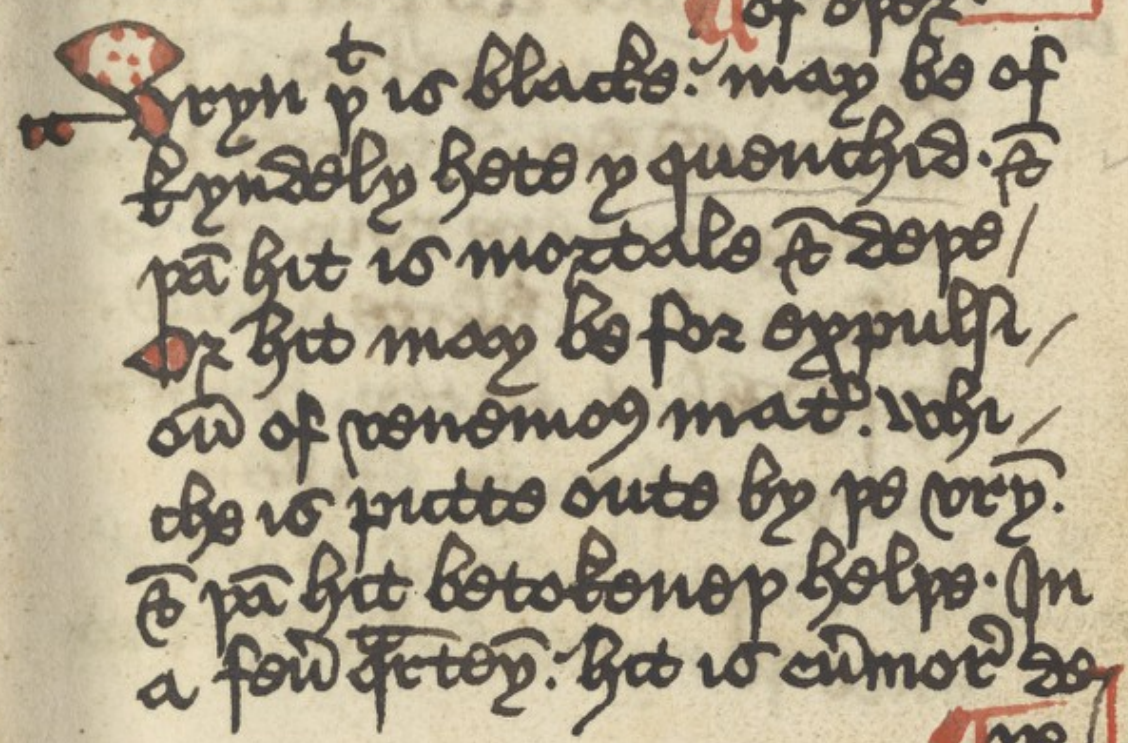 of oþer
Vryn þͭ is blacke: may be of
kyndely hete y quenchid · ⁊̄
þā hit is mortale ⁊̄ deþe /
Or hit may be for expulsi /
oū of venemoꝯ mat᷒ : whi /
che is putte oute by þe vrȳ.
⁊̄ þā hit betokeneþ helþe · In
a feu᷒ q̄rteȳ : hit is eu᷒mor᷒ de